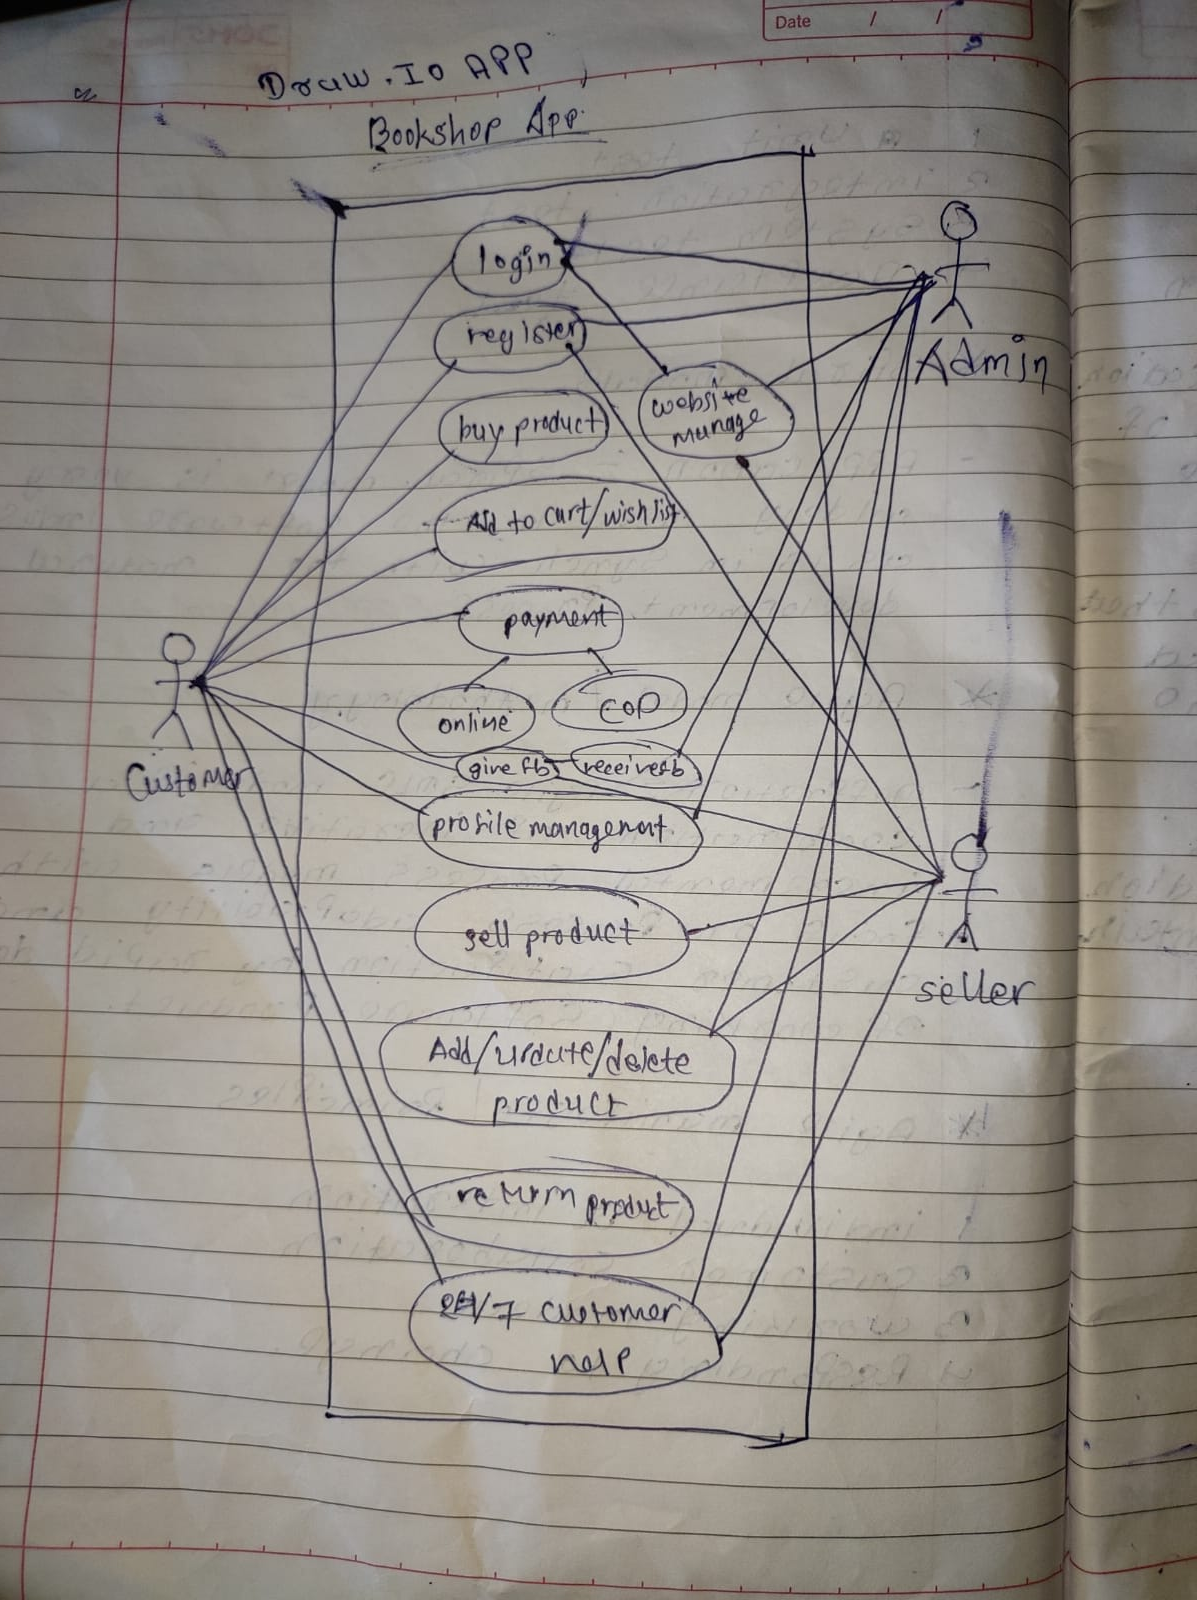 Date / /
Draw.Io APP
Bookshop App.
login
register
Admin
website
manage
buy product
Add to cart/wishlist
payment
online
COD
give fb
receive fb
Customer
profile management
sell product
seller
Add/update/delete
product
return product
24/7 customer
help